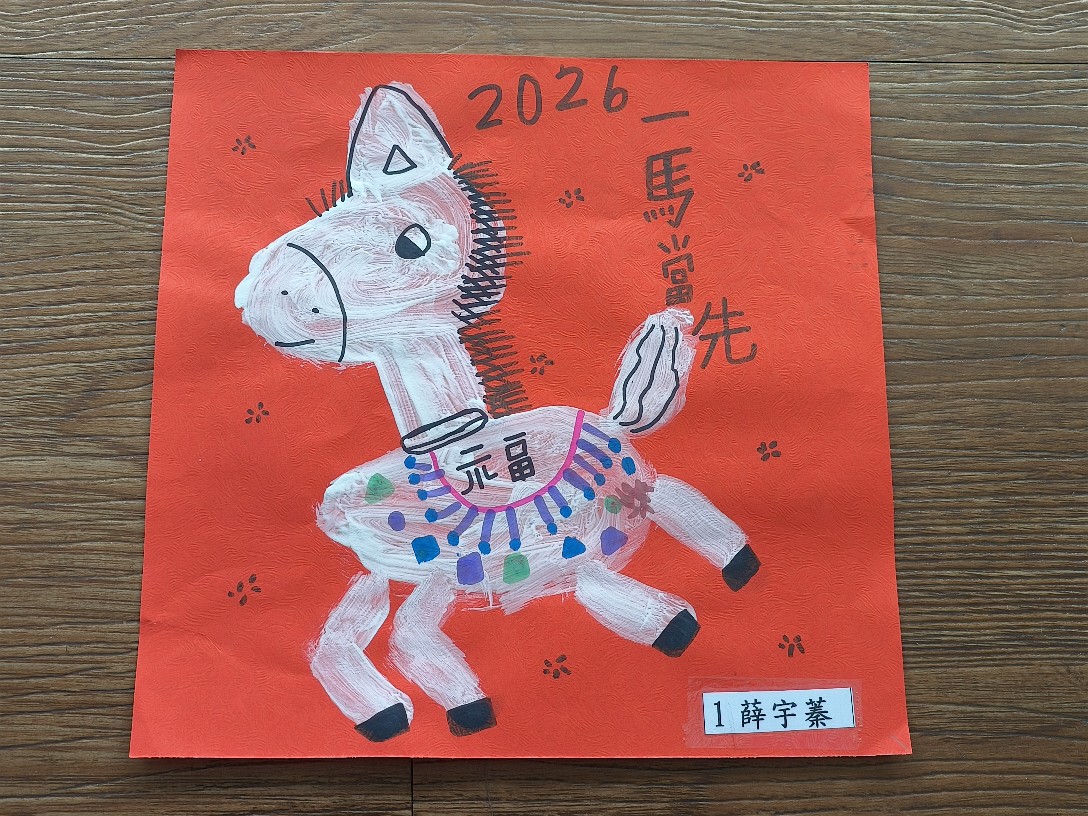 2026
一馬當先
福
1 薛宇蓁